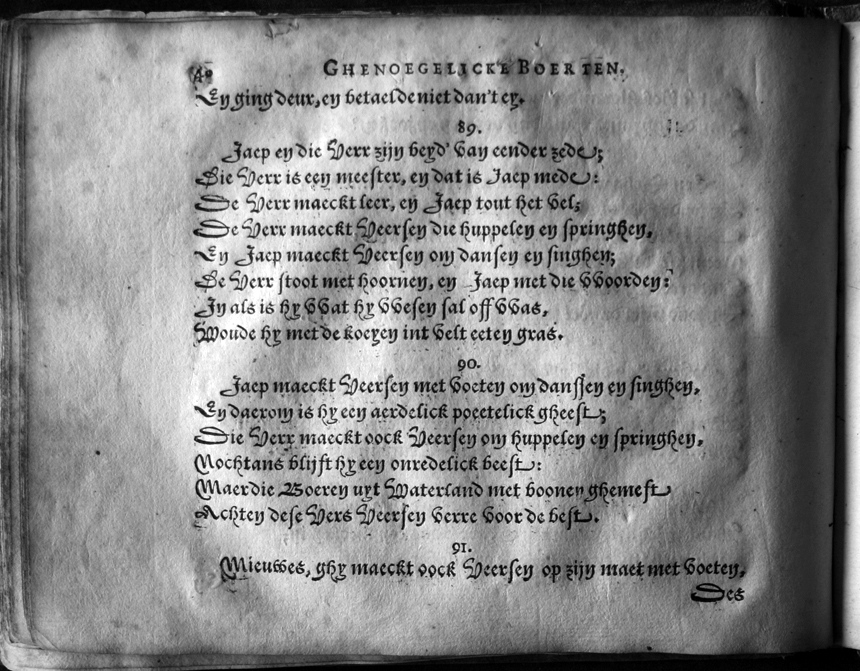 40 GHENOEGELICKE BOERTEN.
En ging deur, en betaelde niet dan't ey.
89.
Jaep en die Verr zijn beyd' van eender zede;
Die Verr is een meester, en dat is Jaep mede:
De Verr maeckt leer, en Jaep tout het vel;
De Verr maeckt Veersen die huppelen en springhen,
En Jaep maeckt Veersen om dansen en singhen;
De Verr stoot met hoornen, en Jaep met die VVoorden:
In als is hy VVat hy VVesen sal off VVas,
Woude hy met de koeyen int velt eeten gras.
90.
Jaep maeckt Veersen met voeten om danssen en singhen,
En daerom is hy een aerdelick poeetelick gheest;
Die Verr maeckt oock Veersen om huppelen en springhen,
Nochtans blijft hy een onredelick beest:
Maer die Boeren uyt Waterland met boonen ghemest
Achten dese Vers Veersen verre voor de best.
91.
Mieuwes, ghy maeckt oock Veersen op zijn maet met voeten,
Des